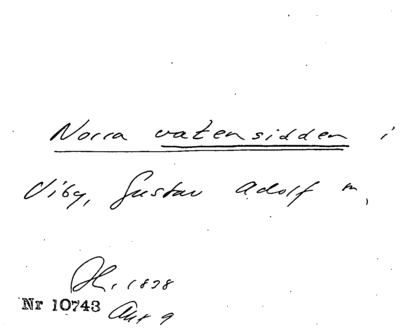 Norra vatensidden i
Viby, Gustav Adolf
1878
Nr 10743